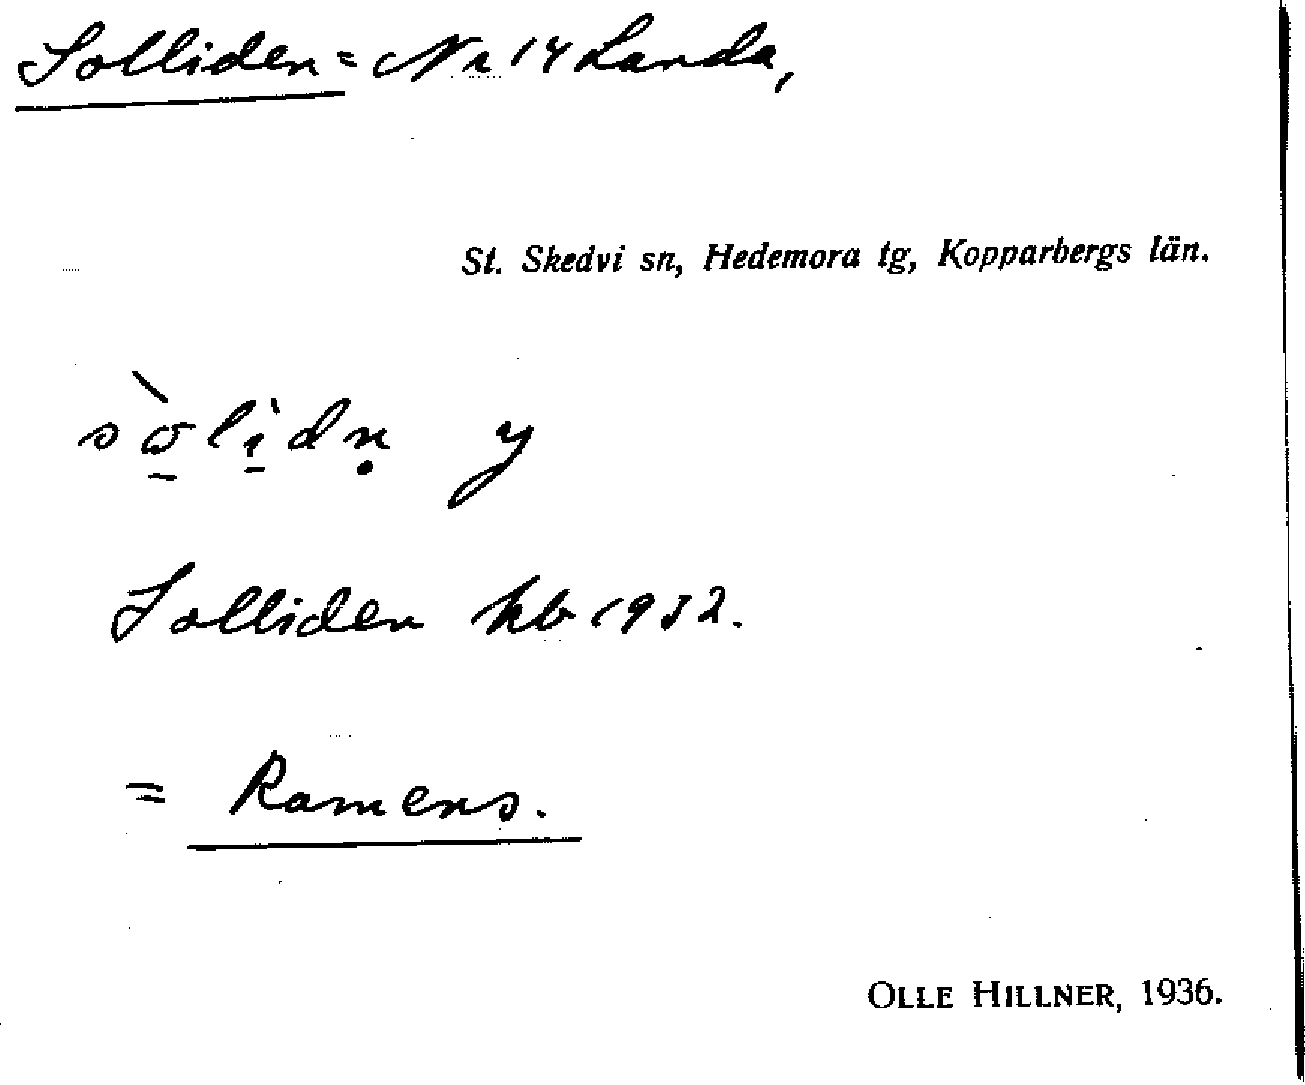 Solliden = Nr 14 Landa,
St. Skedvi sn, Hedemora tg, Kopparbergs län.
Solliden kb 1932.
= Ramens.
OLLE HILLNER, 1936.